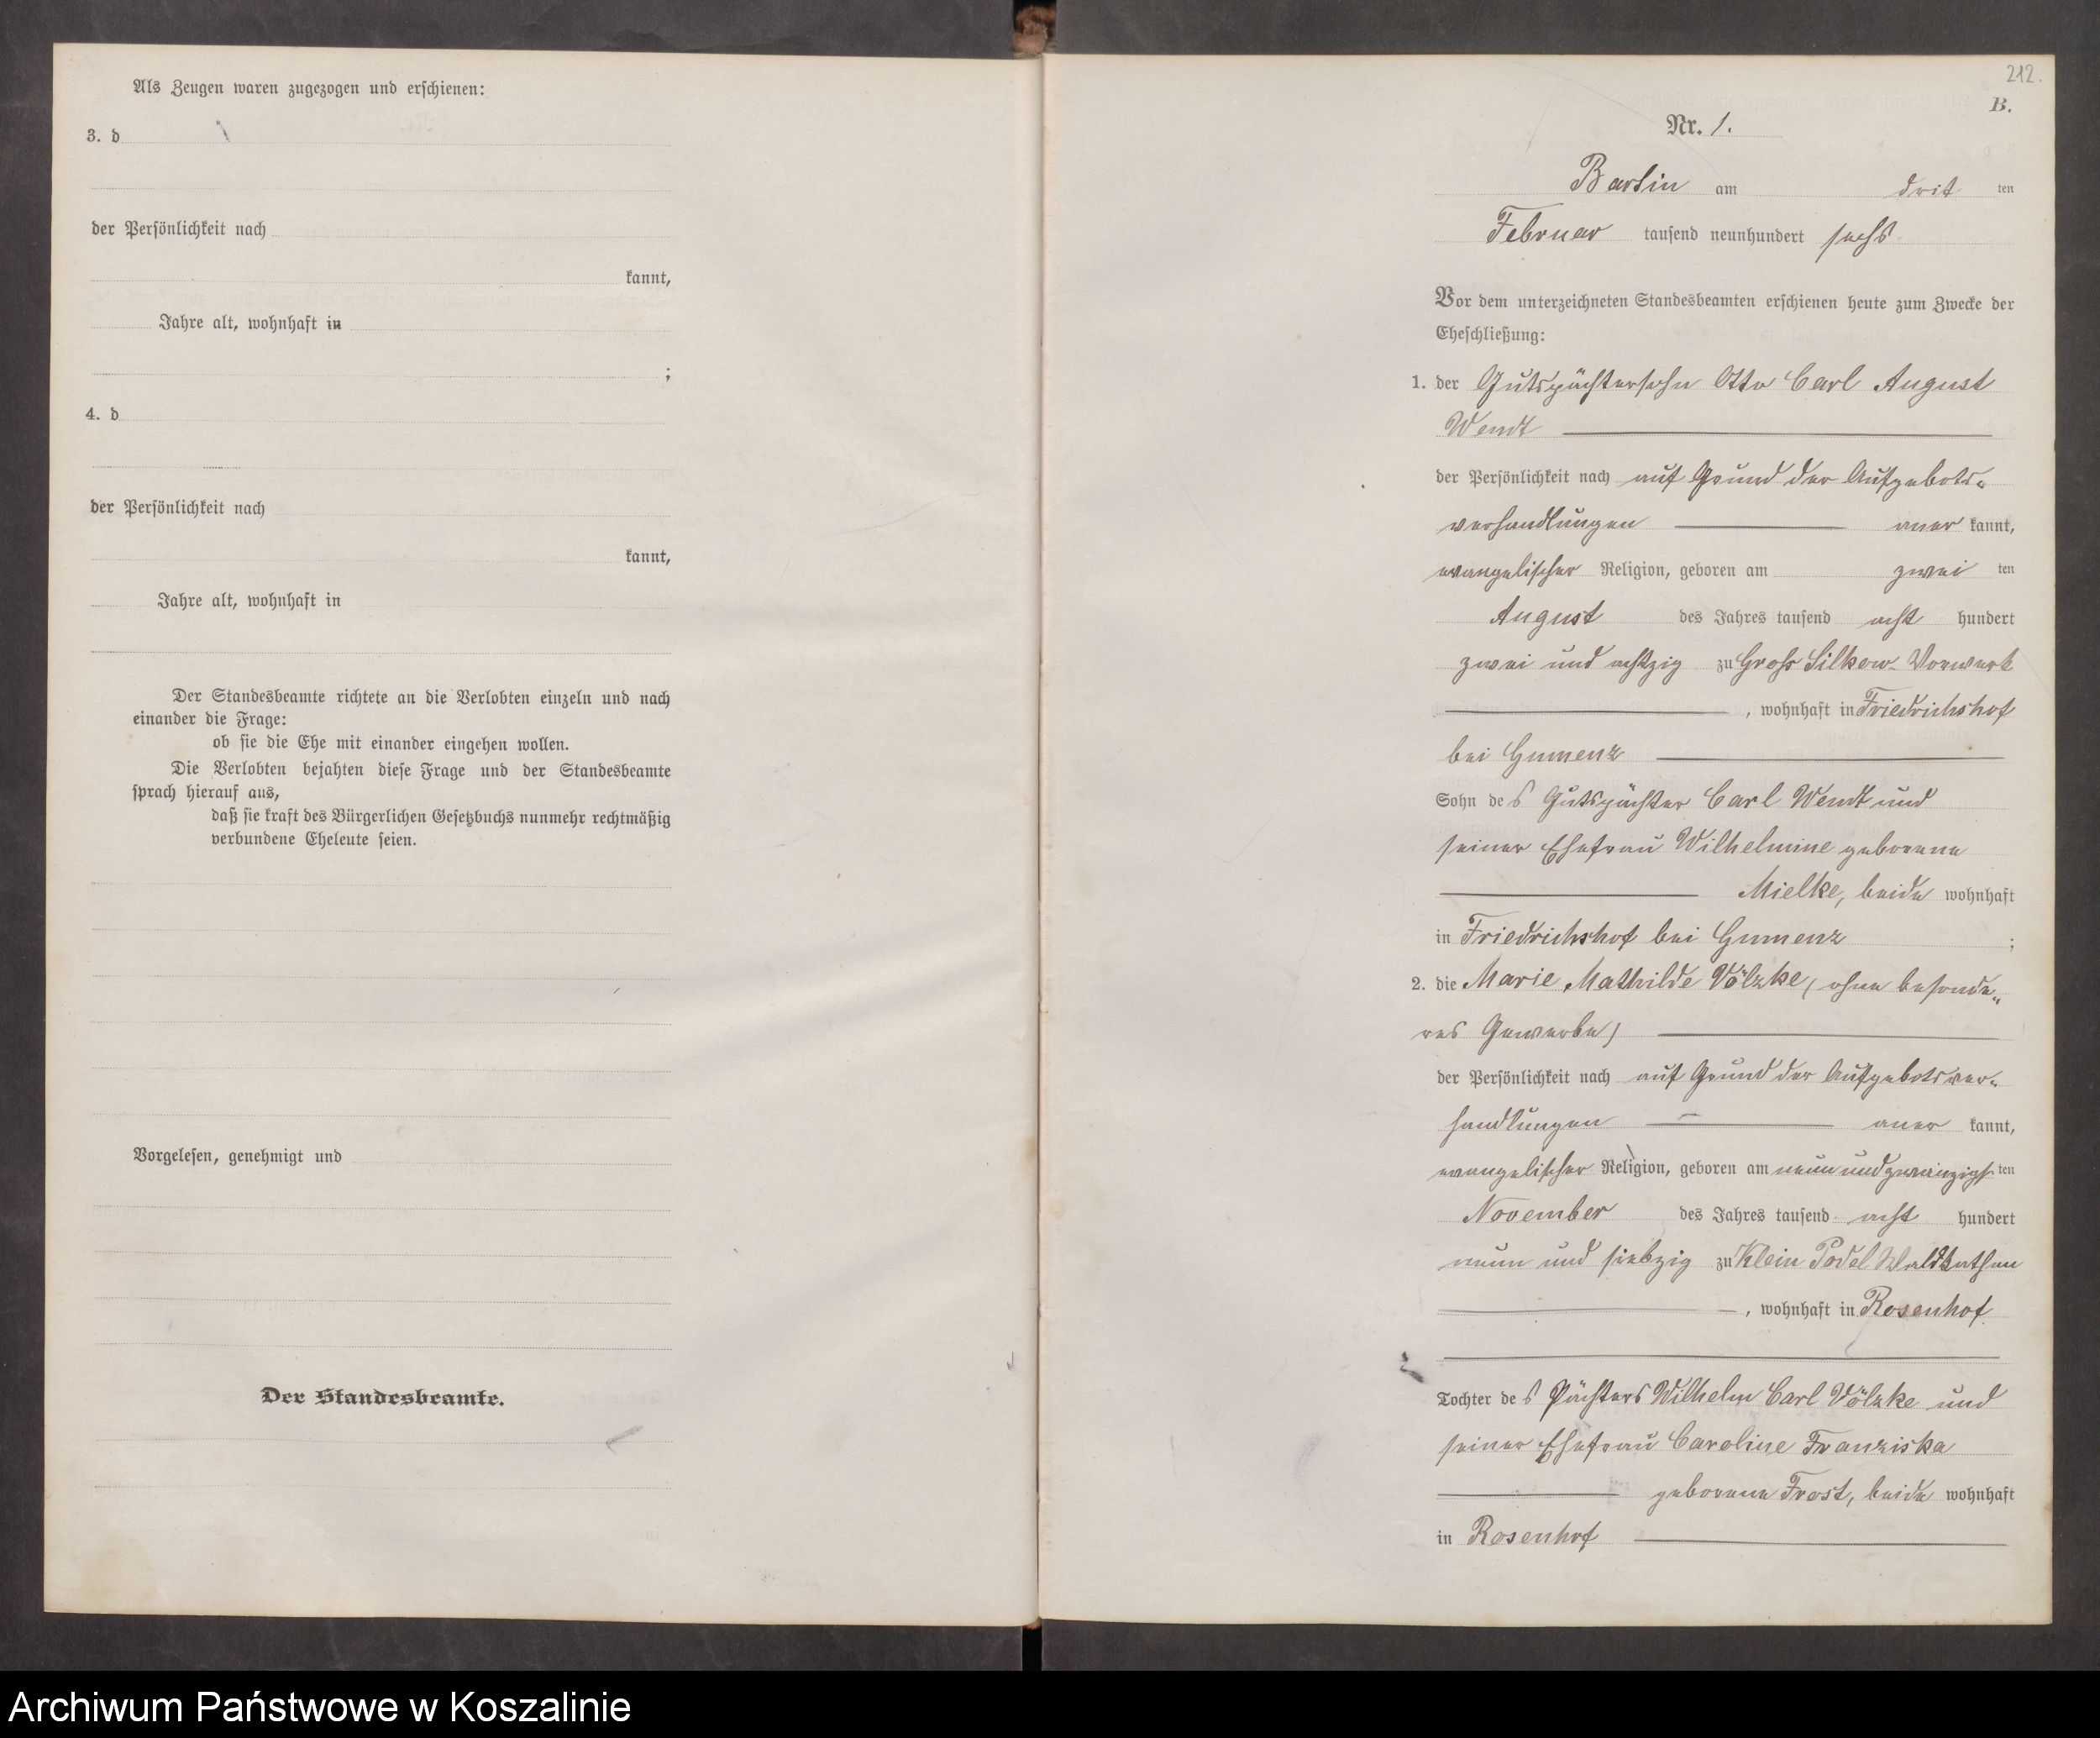 Als Zeugen waren zugezogen und erschienen:
3. d
der Persönlichkeit nach
kannt,
Jahre alt, wohnhaft in
;
4. d
der Persönlichkeit nach
kannt,
Jahre alt, wohnhaft in
Der Standesbeamte richtete an die Verlobten einzeln und nach
einander die Frage:
ob sie die Ehe mit einander eingehen wollen.
Die Verlobten bejahten diese Frage und der Standesbeamte
sprach hierauf aus,
daß sie kraft des Bürgerlichen Gesetzbuchs nunmehr rechtmäßig
verbundene Eheleute seien.
Vorgelesen, genehmigt und
Der Standesbeamte.
212.
B.
Nr. 1.
Bartin am drit ten
Februar tausend neunhundert sechs
Vor dem unterzeichneten Standesbeamten erschienen heute zum Zwecke der
Eheschließung:
1. der Gutspächtersohn Otto Carl August
Wendt
der Persönlichkeit nach auf Grund der Aufgebots-
verhandlungen aner kannt,
evangelischer Religion, geboren am zwei ten
August des Jahres tausend acht hundert
zwei und achtzig zu Groß Silkow-Vorwerk
, wohnhaft in Friedrichshof
bei Gumenz
Sohn des Gutspächter Carl Wendt und
seiner Ehefrau Wilhelmine geborene
Mielke, beide wohnhaft
in Friedrichshof bei Gumenz ;
2. die Marie Mathilde Völzke, ohne besonde-
res Gewerbe,
der Persönlichkeit nach auf Grund der Aufgebotsver-
handlungen aner kannt,
evangelischer Religion, geboren am neunundzwanzigs ten
November des Jahres tausend acht hundert
neun und siebzig zu Klein Podel Waldkathen
, wohnhaft in Rosenhof
Tochter des Pächters Wilhelm Carl Völzke und
seiner Ehefrau Caroline Franziska
geborene Frost, beide wohnhaft
in Rosenhof
Archiwum Państwowe w Koszalinie